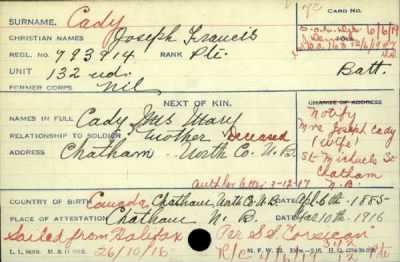 SURNAME. Cady
CARD NO.
CHRISTIAN NAMES Joseph Francis
REGL. NO. 793914 RANK Pte.
UNIT 132nd. Batt.
FORMER CORPS Nil
NEXT OF KIN.
CHANGE OF ADDRESS
NAMES IN FULL Cady Mrs Mary
RELATIONSHIP TO SOLDIER Mother Deceased
ADDRESS Chatham North Co. N.B.
Notify
Mrs Joseph Cady
(wife)
St Michaels St
Chatham
N.B.
Auth per letter 3-12-17
COUNTRY OF BIRTH Canada, Chatham, North Co. N.B. DATE Apl. 6th 1885
PLACE OF ATTESTATION Chatham N. B. DATE Mar 10th 1916
Sailed from Halifax Per S.S. "Corsican"
26/10/16
R/C